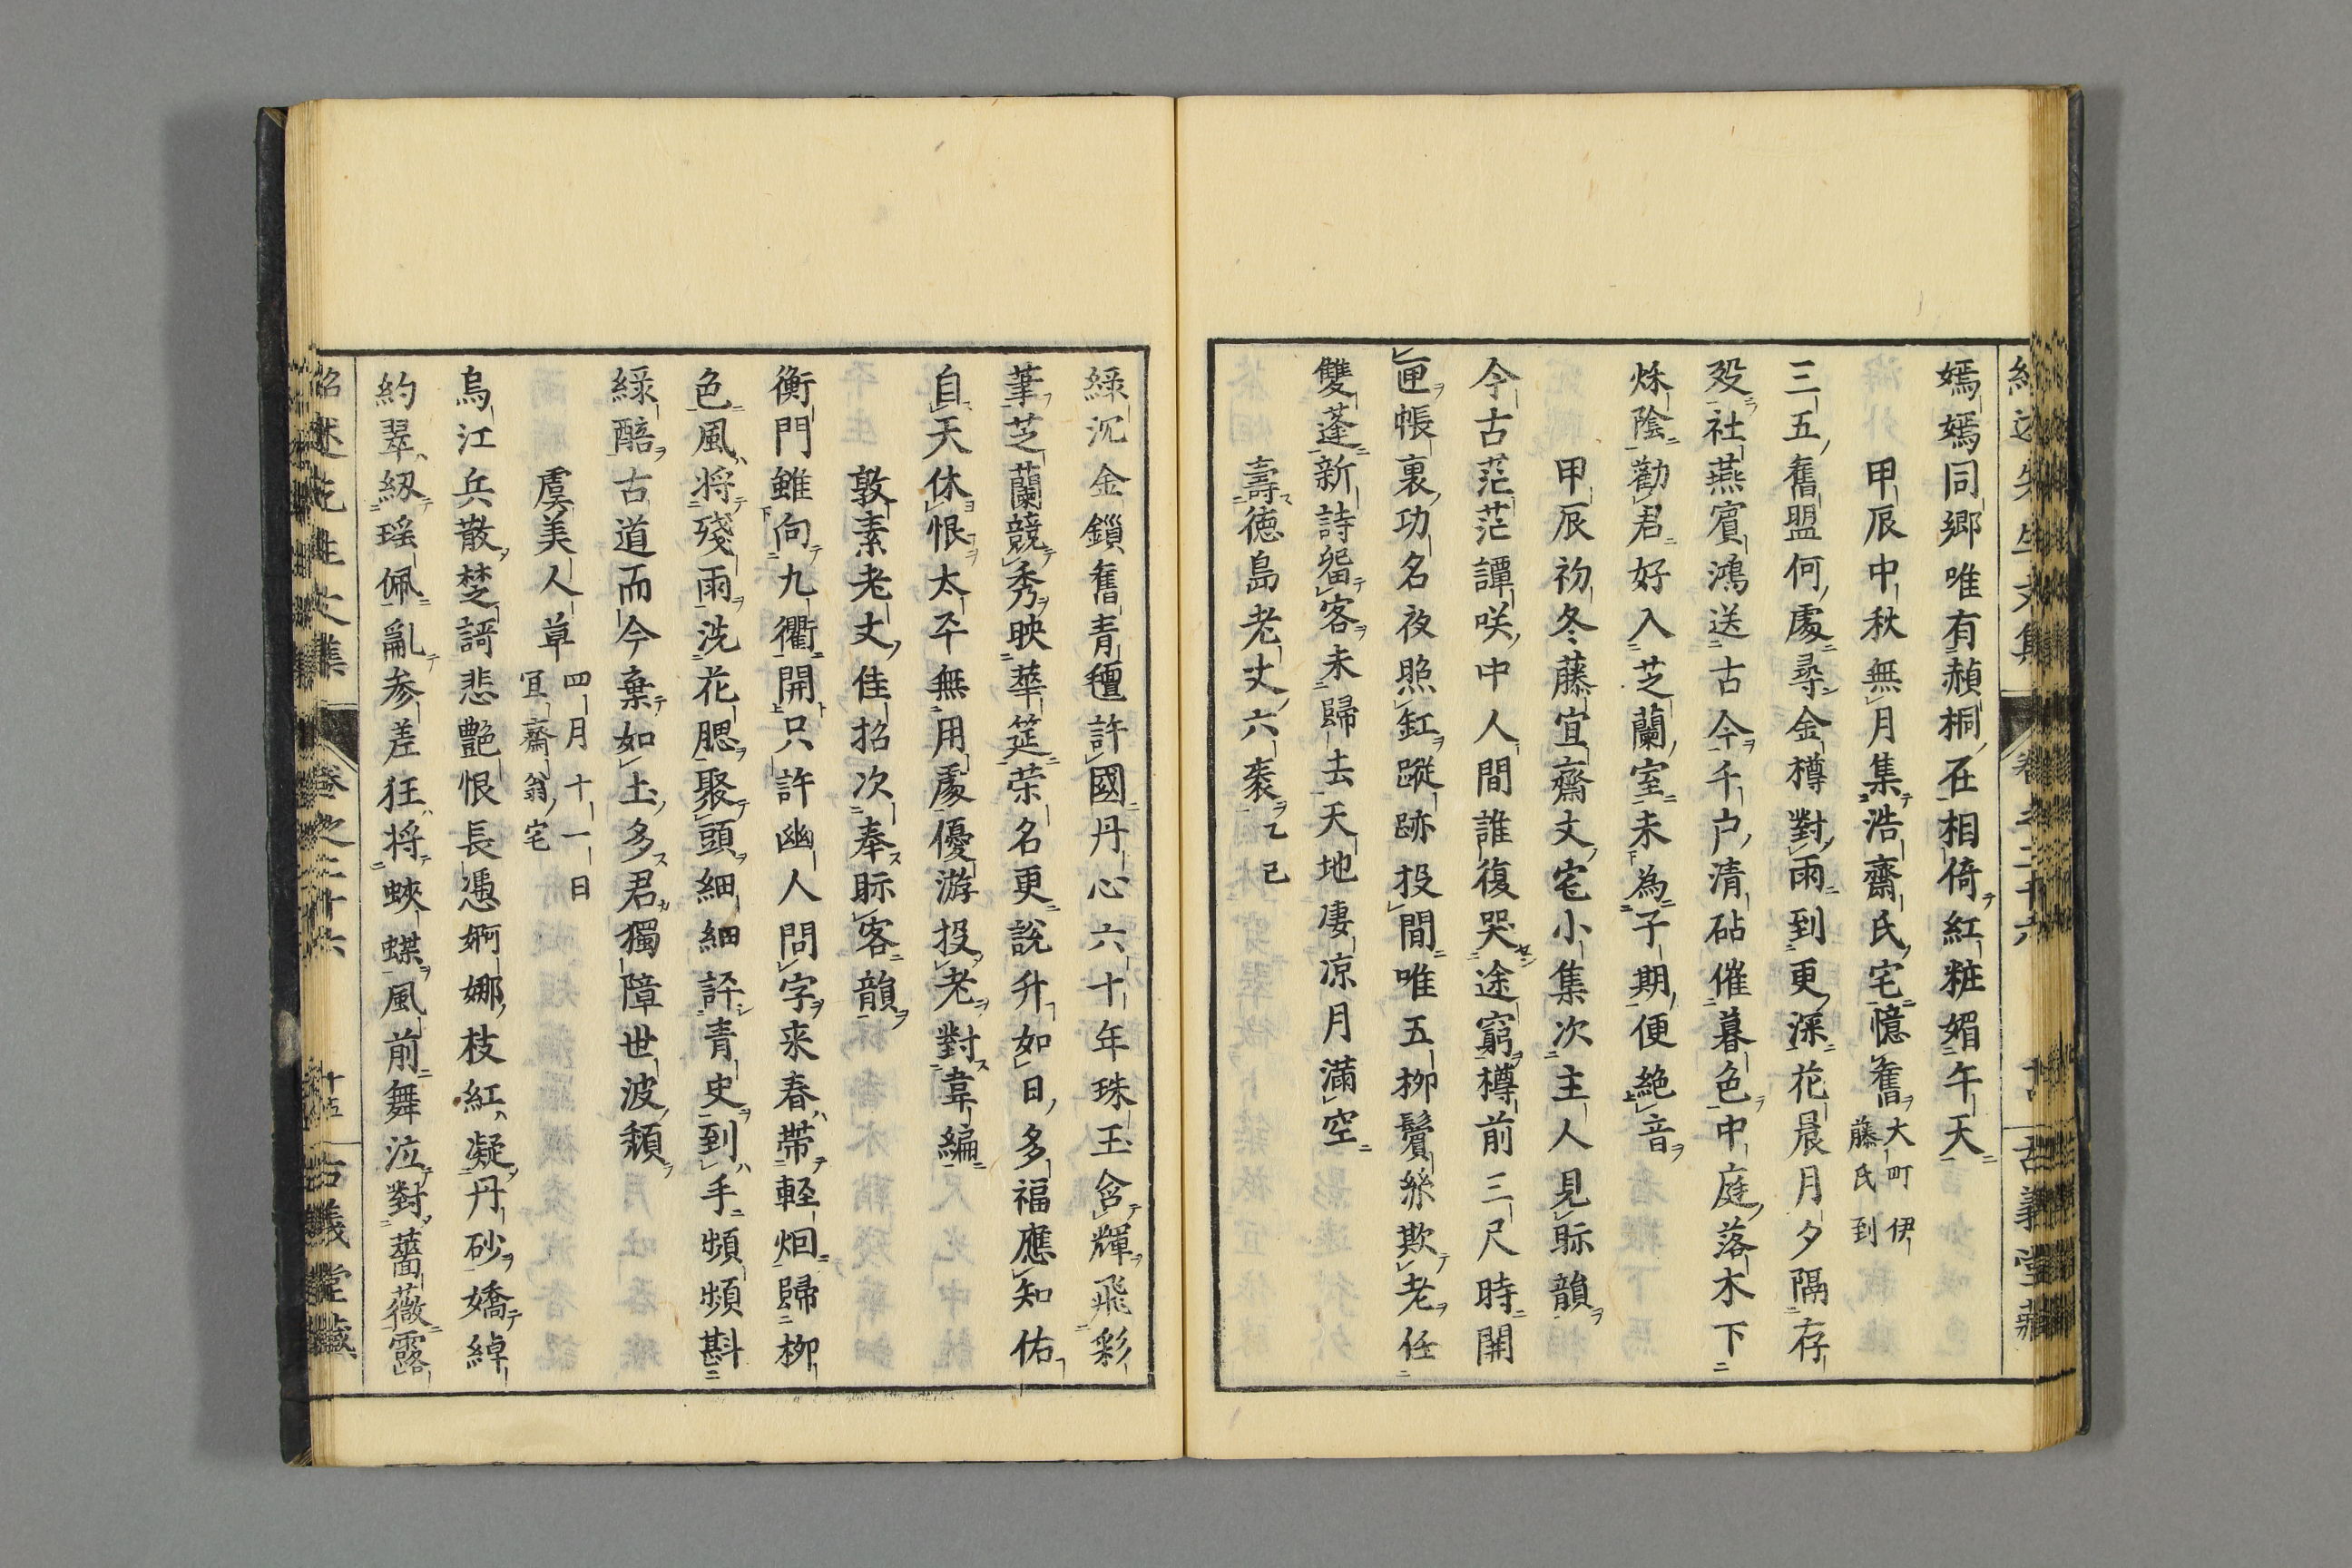 嫣嫣同鄉唯有赬桐在相倚紅粧媚午天
甲辰中秋無月集浩齋氏宅憶舊大町伊
藤氏到
三五舊盟何處尋金樽對雨到更深花晨月夕隔存
歿社燕賓鴻送古今千户清砧催暮色中庭落木下
烁陰勸君好入芝蘭室未為子期便絶音
甲辰初冬藤宜齋丈宅小集次主人見眎韻
今古茫茫譚咲中人間誰復哭途窮樽前三尺時開
匣帳裏功名夜照釭蹤跡投閒唯五柳鬢絲欺老任
雙蓬新詩畱客未歸去天地凄凉月滿空
壽德島老丈六袠乙己
綠沉金鎻舊青氊許國丹心六十年珠玉含輝飛彩
筆芝蘭競秀映華筵荣名更說升如日多福應知佑
自天休恨太平無用處優游投老對韋編
敦素老丈佳招次奉眎客韻
衡門雖向九衢開只許幽人問字来春帶輕烟歸柳
色風将殘雨洗花腮聚頭細細評青史到手頻頻斟
綠醅古道而今棄如土多君獨障世波頽
虞美人草四月十一日
宜齋翁宅
烏江兵散楚謌悲艷恨長憑婀娜枝紅凝丹砂嬌綽
約翠紉瑶佩亂参差狂将蛺蝶風前舞泣對薔薇露
卷之二十六
十五
古義堂藏